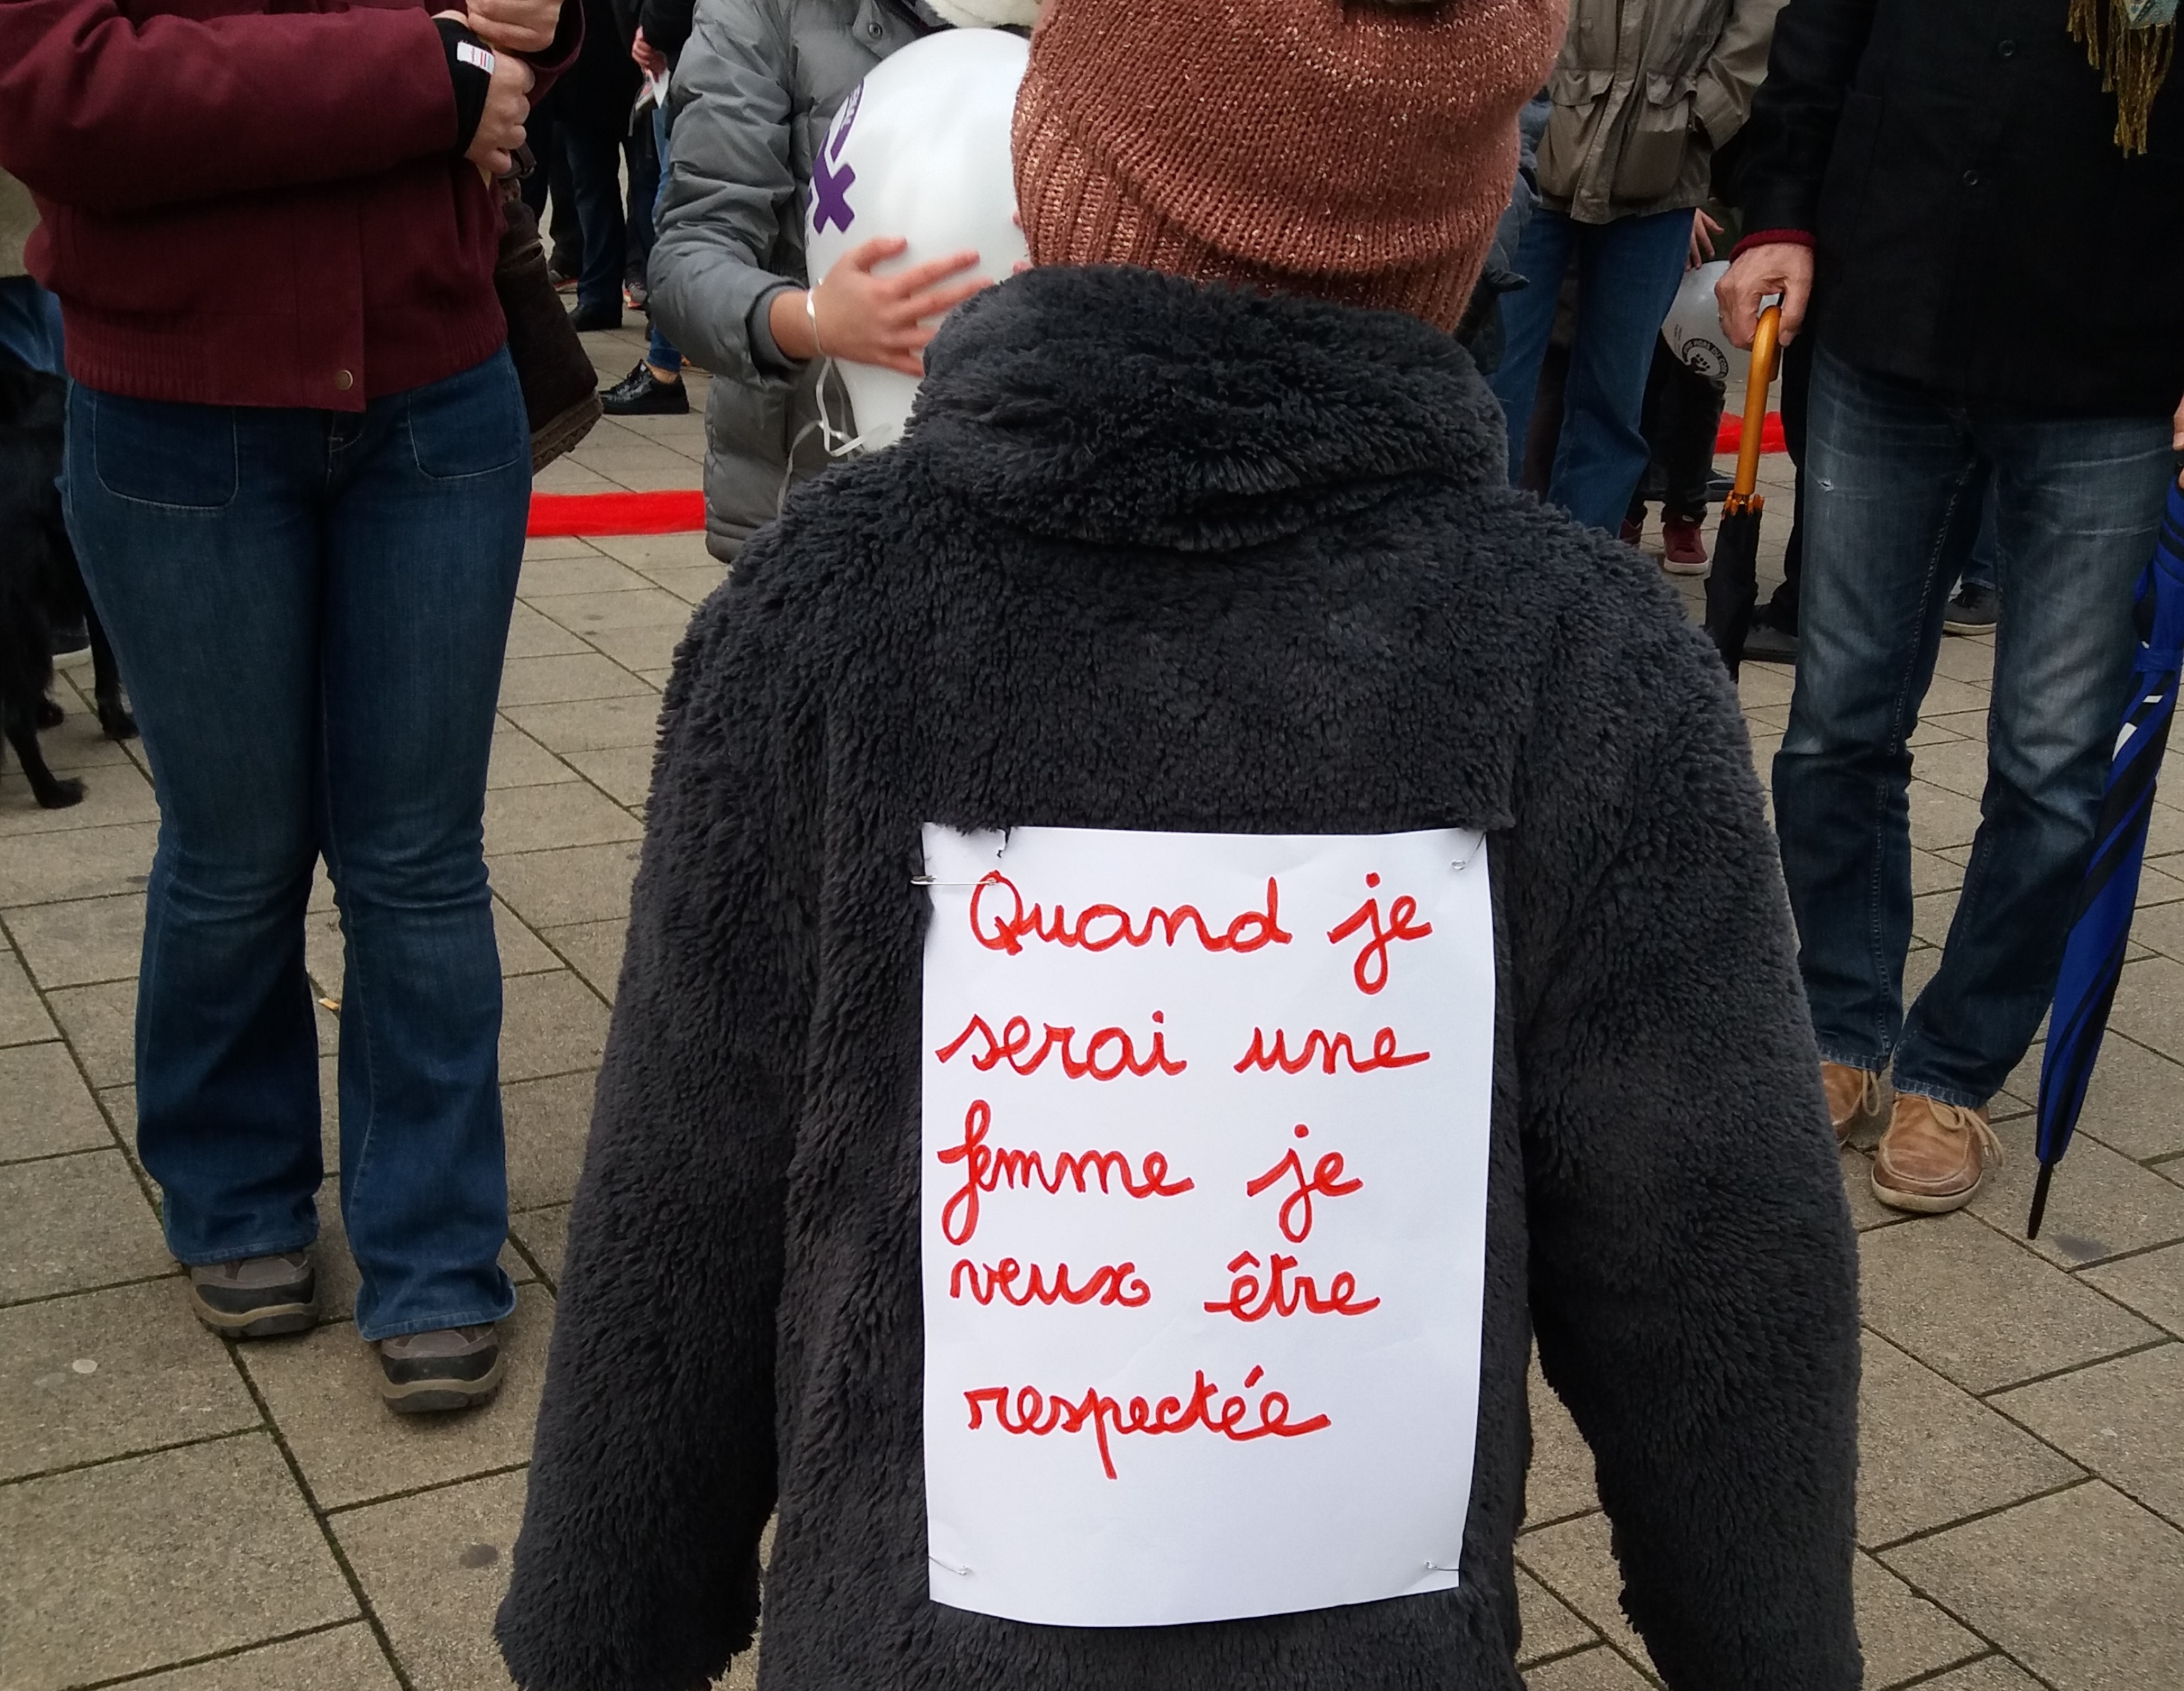 Quand je
serai une
femme je
veux être
respectée